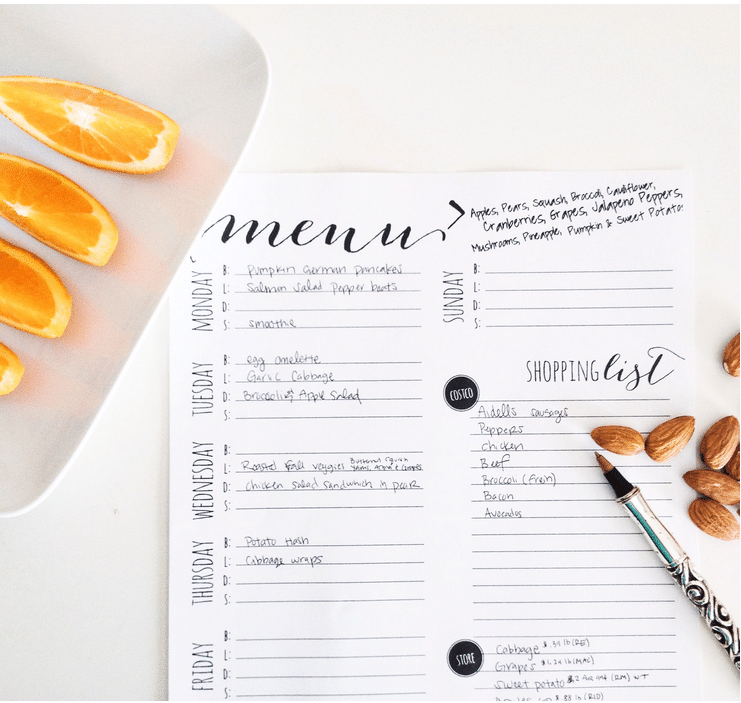 menu
Apples, Pears, Squash, Broccoli, Cauliflower,
Cranberries, Grapes, Jalapeno Peppers,
Mushrooms, Pineapple, Pumpkin & Sweet Potato!
MONDAY
B: Pumpkin German Pancakes
L: Salmon Salad Pepper boats
D:
S: smoothie
TUESDAY
B: egg omelette
L: Garlic Cabbage
D: Broccoli & Apple Salad
S:
WEDNESDAY
B:
L: Roasted Fall veggies Butternut Squash
Yams, Apple &
D: Chicken salad sandwhich in pear
S:
THURSDAY
B: Potato Hash
L: Cabbage wraps
D:
S:
FRIDAY
B:
L:
D:
S:
SUNDAY
B:
L:
D:
S:
SHOPPING list
COSTCO
Aidells sausages
Peppers
Chicken
Beef
Broccoli
Bacon
Avocados
STORE
Cabbage lb
Grapes $1.24 lb (MAC)
Sweet potato
lb (RID)